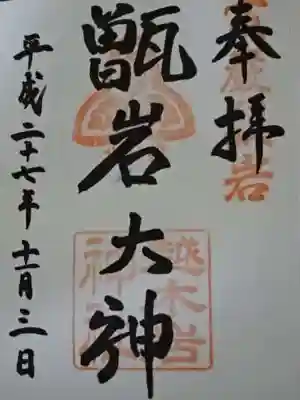 奉拝
甑岩大神
平成二十七年十一月三日
越木岩
神